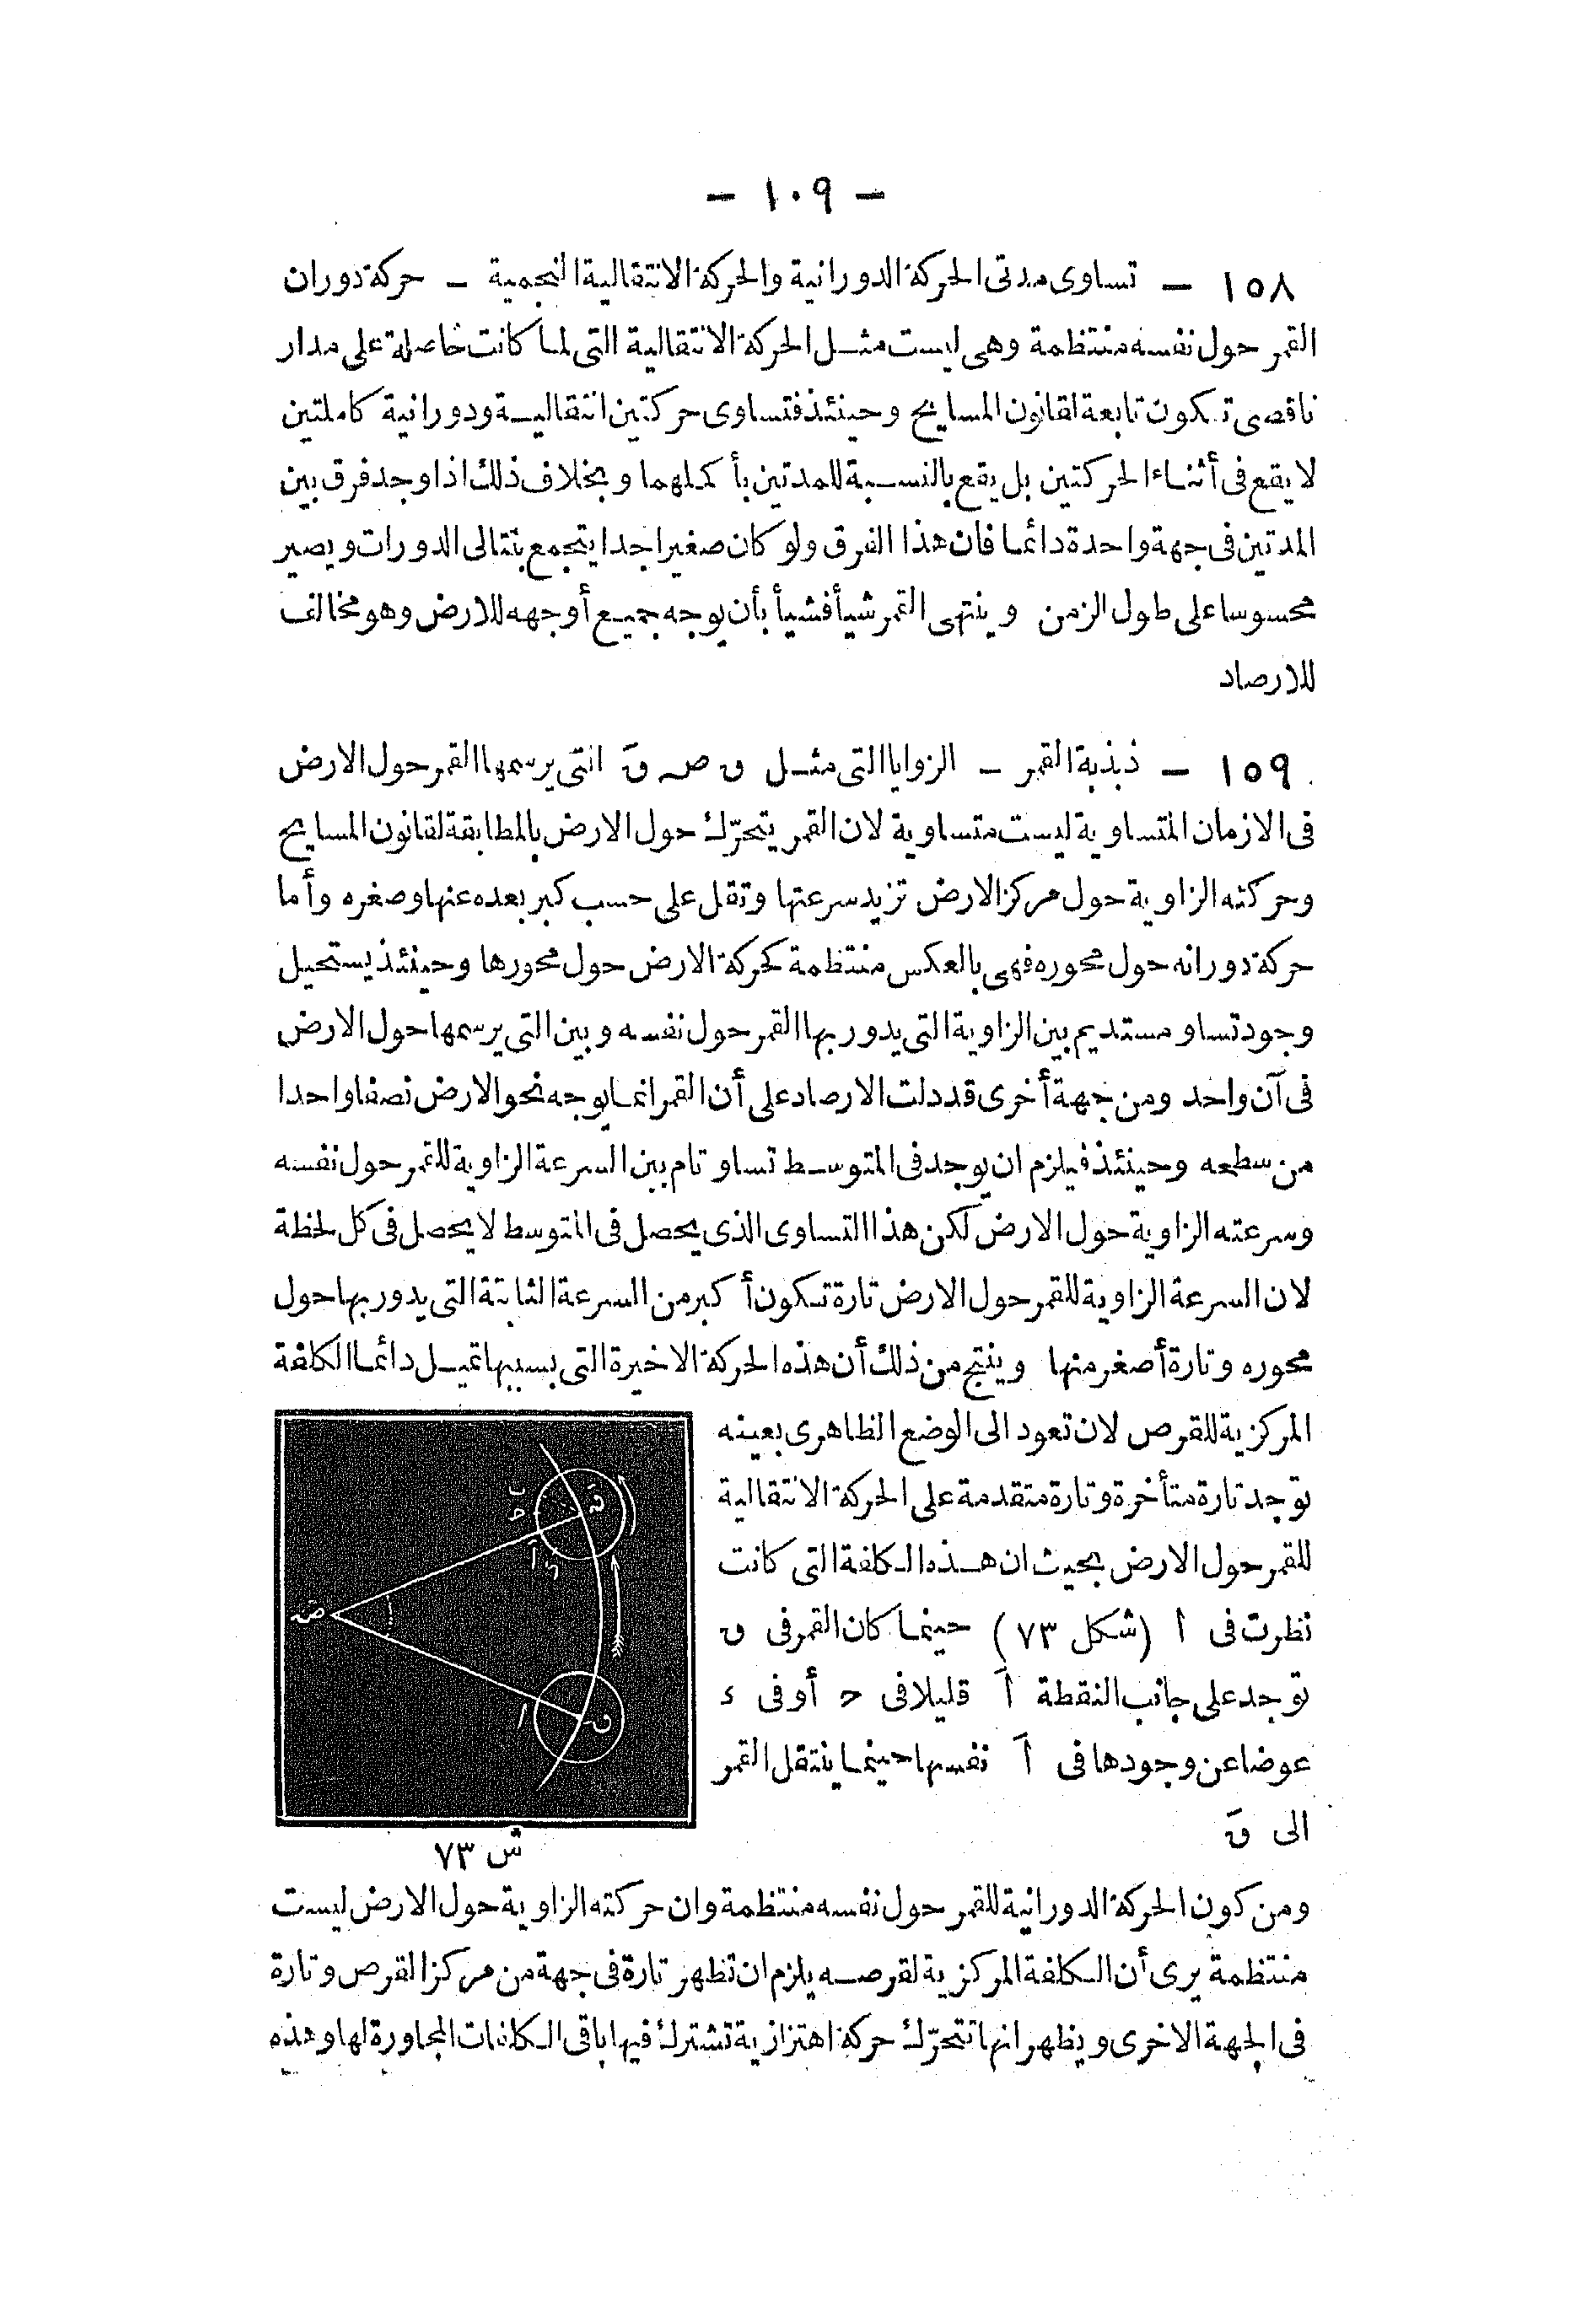 - ١٠٩ -
١٥٨ - تساوى مدتى الحركة الدورانية والحركة الانتقالية النجمية - حركة دوران
القمر حول نفسه منتظمة وهى ليست مثل الحركة الانتقالية التى لما كانت خاصلة على مدار
ناقصى تكون تابعة لقانون المسايح وحينئذ فتساوى حركتين انتقالية ودورانية كاملتين
لا يقع فى أثناء الحركتين بل يقع بالنسبة للمدتين بأكملهما وبخلاف ذلك اذا وجد فرق بين
المدتين فى جهة واحدة دائما فان هذا الفرق ولو كان صغيرا جدا يتجمع بتتالى الدورات ويصير
محسوسا على طول الزمن وينتهى القمر شيأ فشيأ بأن يوجه جميع أوجهه للارض وهو مخالف
للارصاد
١٥٩ - ذبذبة القمر - الزوايا التى مثل ق ضہ قَ التى يرسمها القمر حول الارض
فى الازمان المتساوية ليست متساوية لان القمر يتحرّك حول الارض بالمطابقة لقانون المسايح
وحركته الزاوية حول مركز الارض تزيد سرعتها وتقل على حسب كبر بعده عنها وصغره وأما
حركة دورانه حول محوره فهى بالعكس منتظمة كحركة الارض حول محورها وحينئذ يستحيل
وجود تساو مستديم بين الزاوية التى يدور بها القمر حول نفسه وبين التى يرسمها حول الارض
فى آن واحد ومن جهة أخرى قد دلت الارصاد على أن القمر انما يوجه نحو الارض نصفا واحدا
من سطحه وحينئذ فيلزم ان يوجد فى المتوسط تساو تام بين السرعة الزاوية للقمر حول نفسه
وسرعته الزاوية حول الارض لكن هذا التساوى الذى يحصل فى المتوسط لا يحصل فى كل لحظة
لان السرعة الزاوية للقمر حول الارض تارة تكون أكبر من السرعة الثابتة التى يدور بها حول
محوره وتارة أصغر منها وينتج من ذلك أن هذه الحركة الاخيرة التى بسببها تميل دائما الكلفة
المركزية للقرص لان تعود الى الوضع الظاهرى بعينه
توجد تارة متأخرة وتارة متقدمة على الحركة الانتقالية
للقمر حول الارض بحيث ان هذه الكلفة التى كانت
نظرت فى ا (شكل ٧٣) حينما كان القمر فى ق
توجد على جانب النقطة اَ قليلا فى ح أو فى د
عوضا عن وجودها فى اَ نفسها حينما ينتقل القمر
الى قَ
ش ٧٣
ومن كون الحركة الدورانية للقمر حول نفسه منتظمة وان حركته الزاوية حول الارض ليست
منتظمة يرى أن الكلفة المركزية لقرصه يلزم ان تظهر تارة فى جهة من مركز القرص وتارة
فى الجهة الاخرى ويظهر انها تتحرّك حركة اهتزازية تشترك فيها باقى الكلفات المجاورة لها وهذه